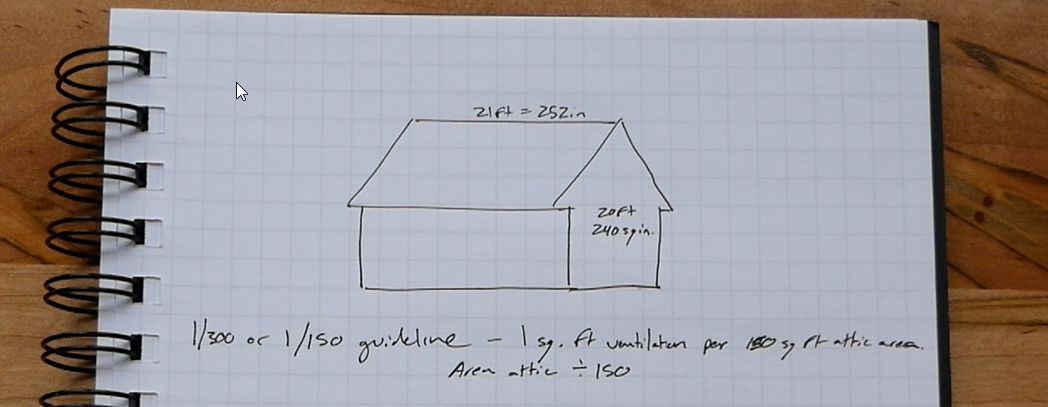 21ft = 252in
20ft
240sqin.
1/300 or 1/150 guideline – 1 sq. ft ventilation per 150 sq ft attic area.
Area attic ÷ 150